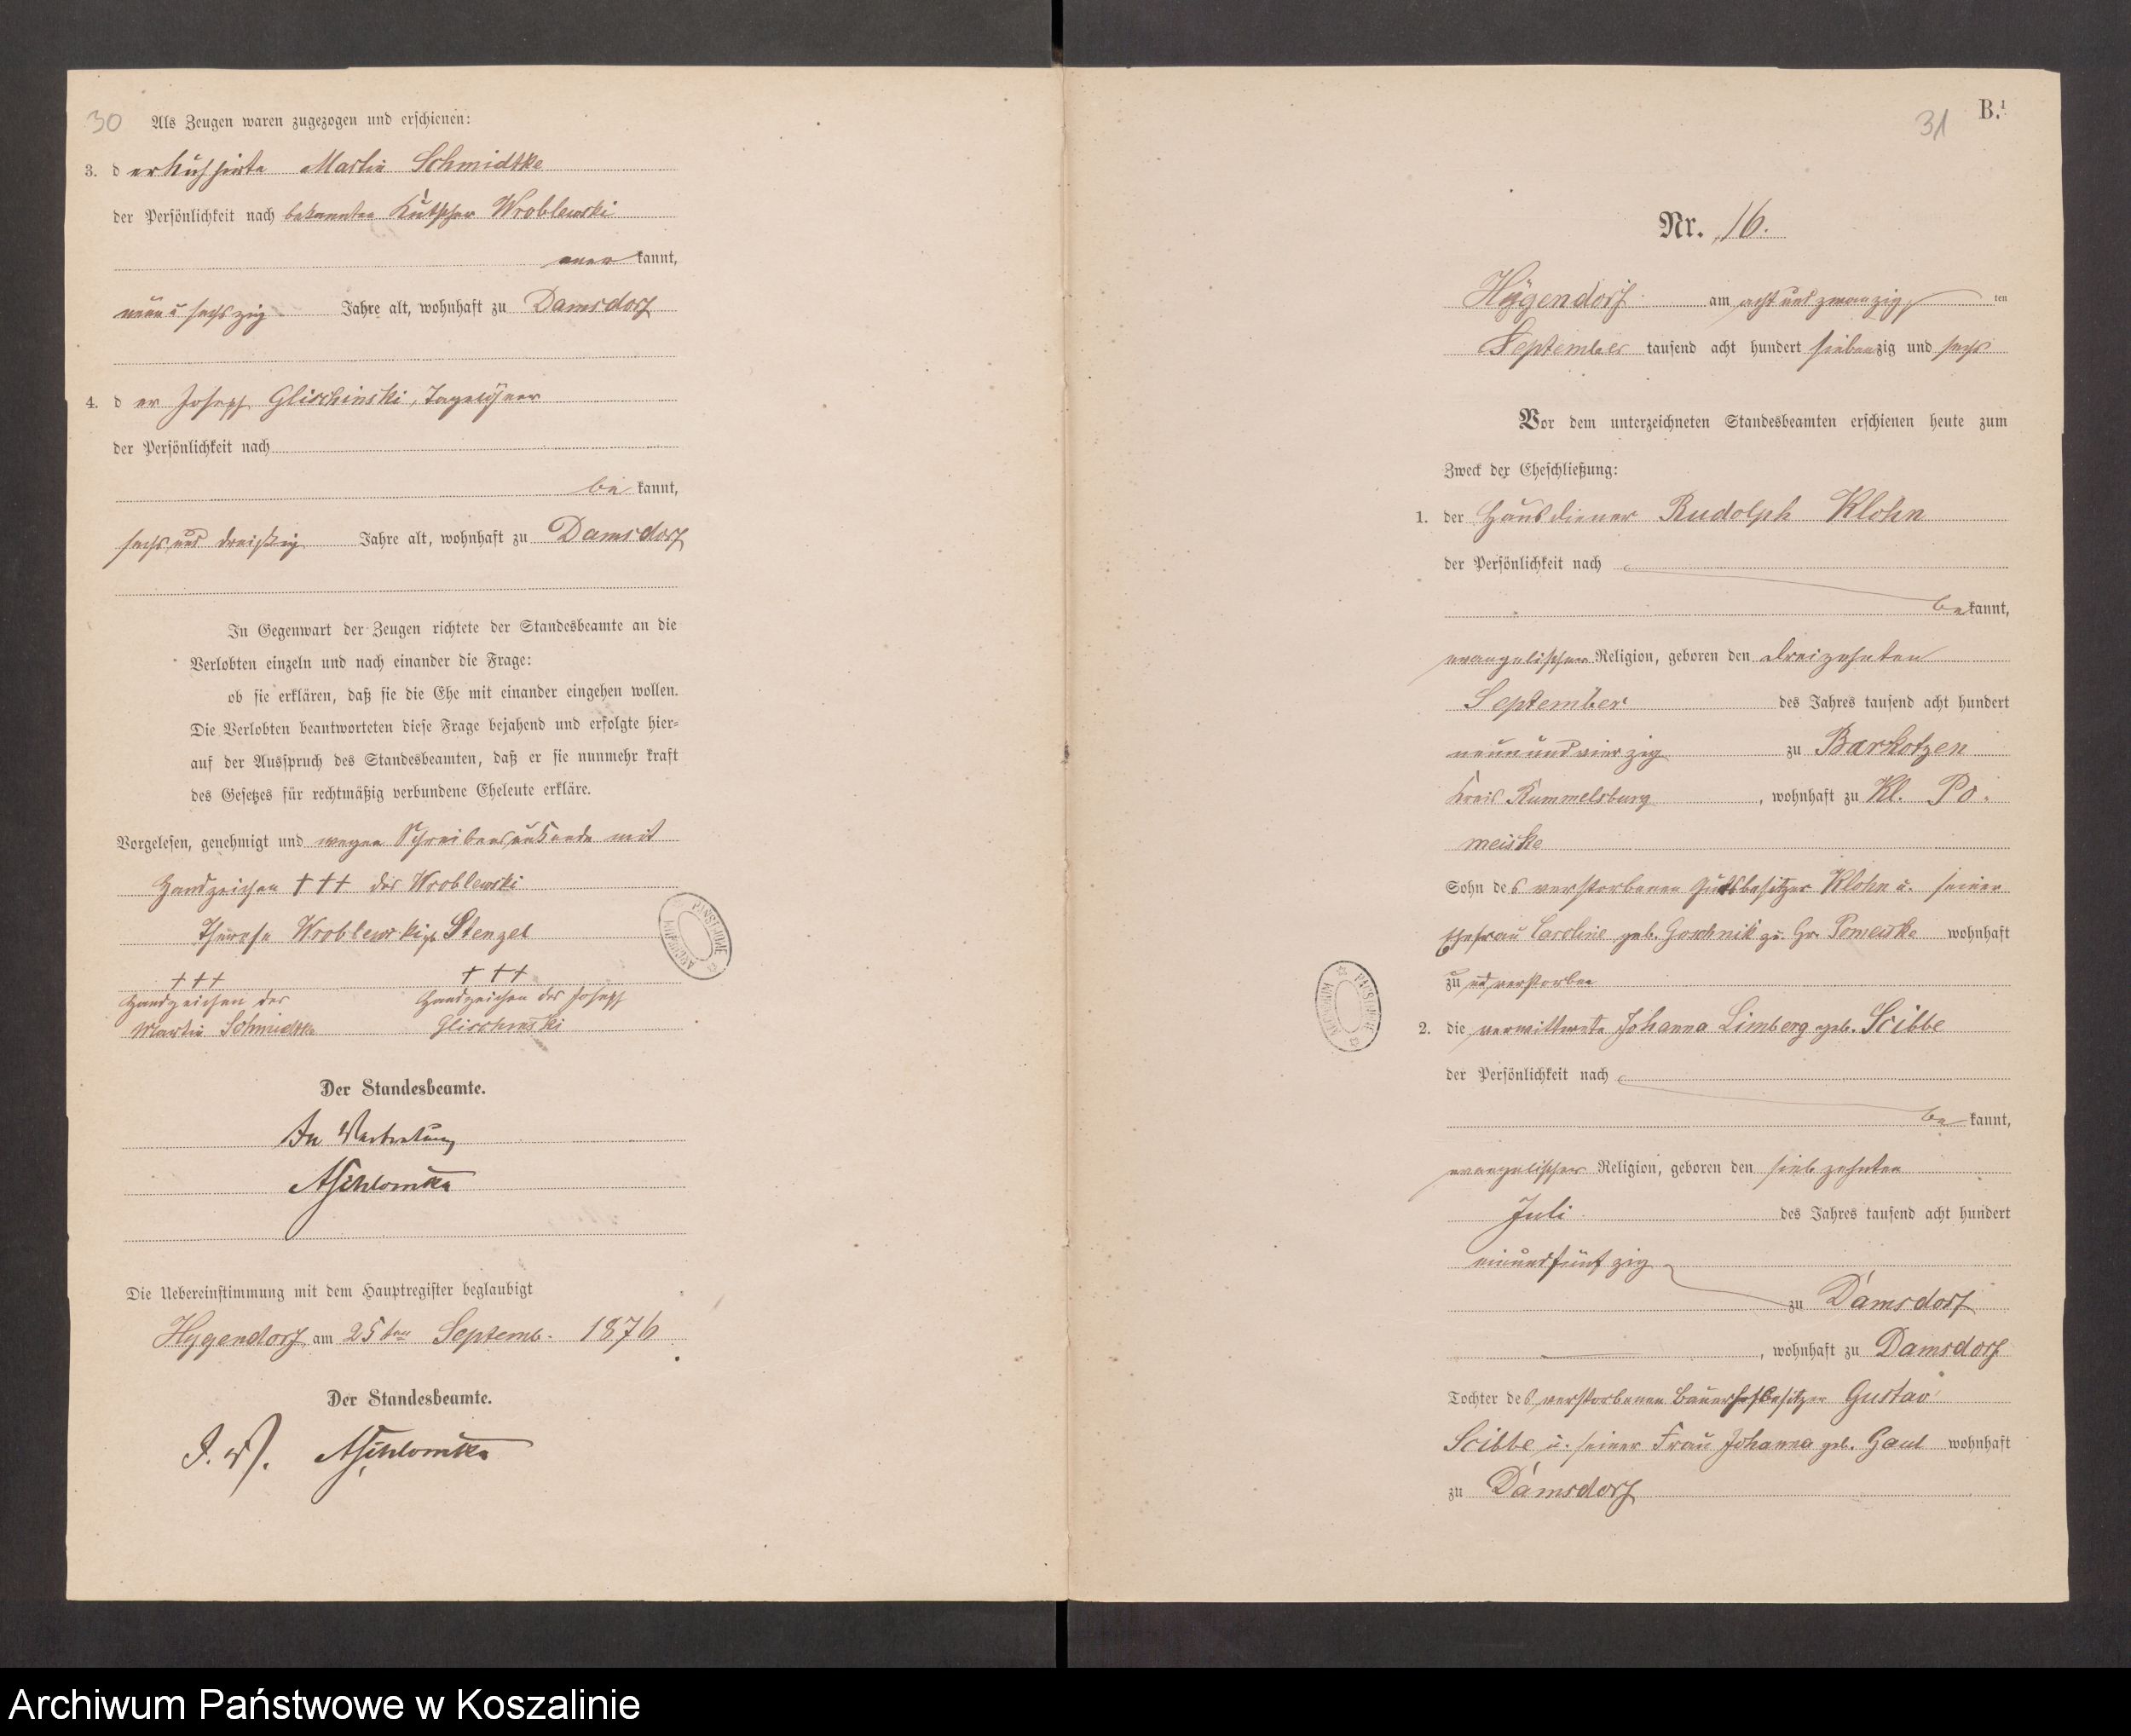 30
Als Zeugen waren zugezogen und erschienen:
3. der Kuhhirte Martin Schmidtke
der Persönlichkeit nach bekannten Kutscher Wroblewski
anerkannt,
neun u sechszig Jahre alt, wohnhaft zu Damsdorf
4. der Joseph Glischinski, Tagelöhner
der Persönlichkeit nach
bekannt,
sechs und dreißig Jahre alt, wohnhaft zu Damsdorf
In Gegenwart der Zeugen richtete der Standesbeamte an die
Verlobten einzeln und nach einander die Frage:
ob sie erklären, daß sie die Ehe mit einander eingehen wollen.
Die Verlobten beantworteten diese Frage bejahend und erfolgte hier-
auf der Ausspruch des Standesbeamten, daß er sie nunmehr kraft
des Gesetzes für rechtmäßig verbundene Eheleute erkläre.
Vorgelesen, genehmigt und wegen Schreibensunkunde mit
Handzeichen +++ des Wroblewski
Therese Wroblewski gb Stenzel
+++ +++
Handzeichen des Handzeichen des Joseph
Martin Schmidtke Glischinski
Der Standesbeamte.
In Vertretung
Die Uebereinstimmung mit dem Hauptregister beglaubigt
Hygendorf am 25ten Septemb. 1876
Der Standesbeamte.
I. V.
31
B.1
Nr. 16.
Hygendorf am acht und zwanzig ten
September tausend acht hundert siebenzig und sechs
Vor dem unterzeichneten Standesbeamten erschienen heute zum
Zweck der Eheschließung:
1. der Hausdiener Rudolph Klohn
der Persönlichkeit nach
bekannt,
evangelischer Religion, geboren den dreizehnten
September des Jahres tausend acht hundert
neunundvierzig zu Barkotzen
Kreis Rummelsburg, wohnhaft zu Kl. Po-
meiske
Sohn des verstorbenen Gutsbesitzer Klohn u. seiner
Ehefrau Caroline geb. Goschnik zu Gr. Pomeiske wohnhaft
zu verstorben
2. die verwittwete Johanna Limberg geb. Scibbe
der Persönlichkeit nach
bekannt,
evangelischer Religion, geboren den siebzehnten
Juli des Jahres tausend acht hundert
einundfünfzig
zu Damsdorf
, wohnhaft zu Damsdorf
Tochter des verstorbenen Bauerhofbesitzer Gustav
Scibbe u. seiner Frau Johanna geb. Gaul wohnhaft
zu Damsdorf
Archiwum Państwowe w Koszalinie